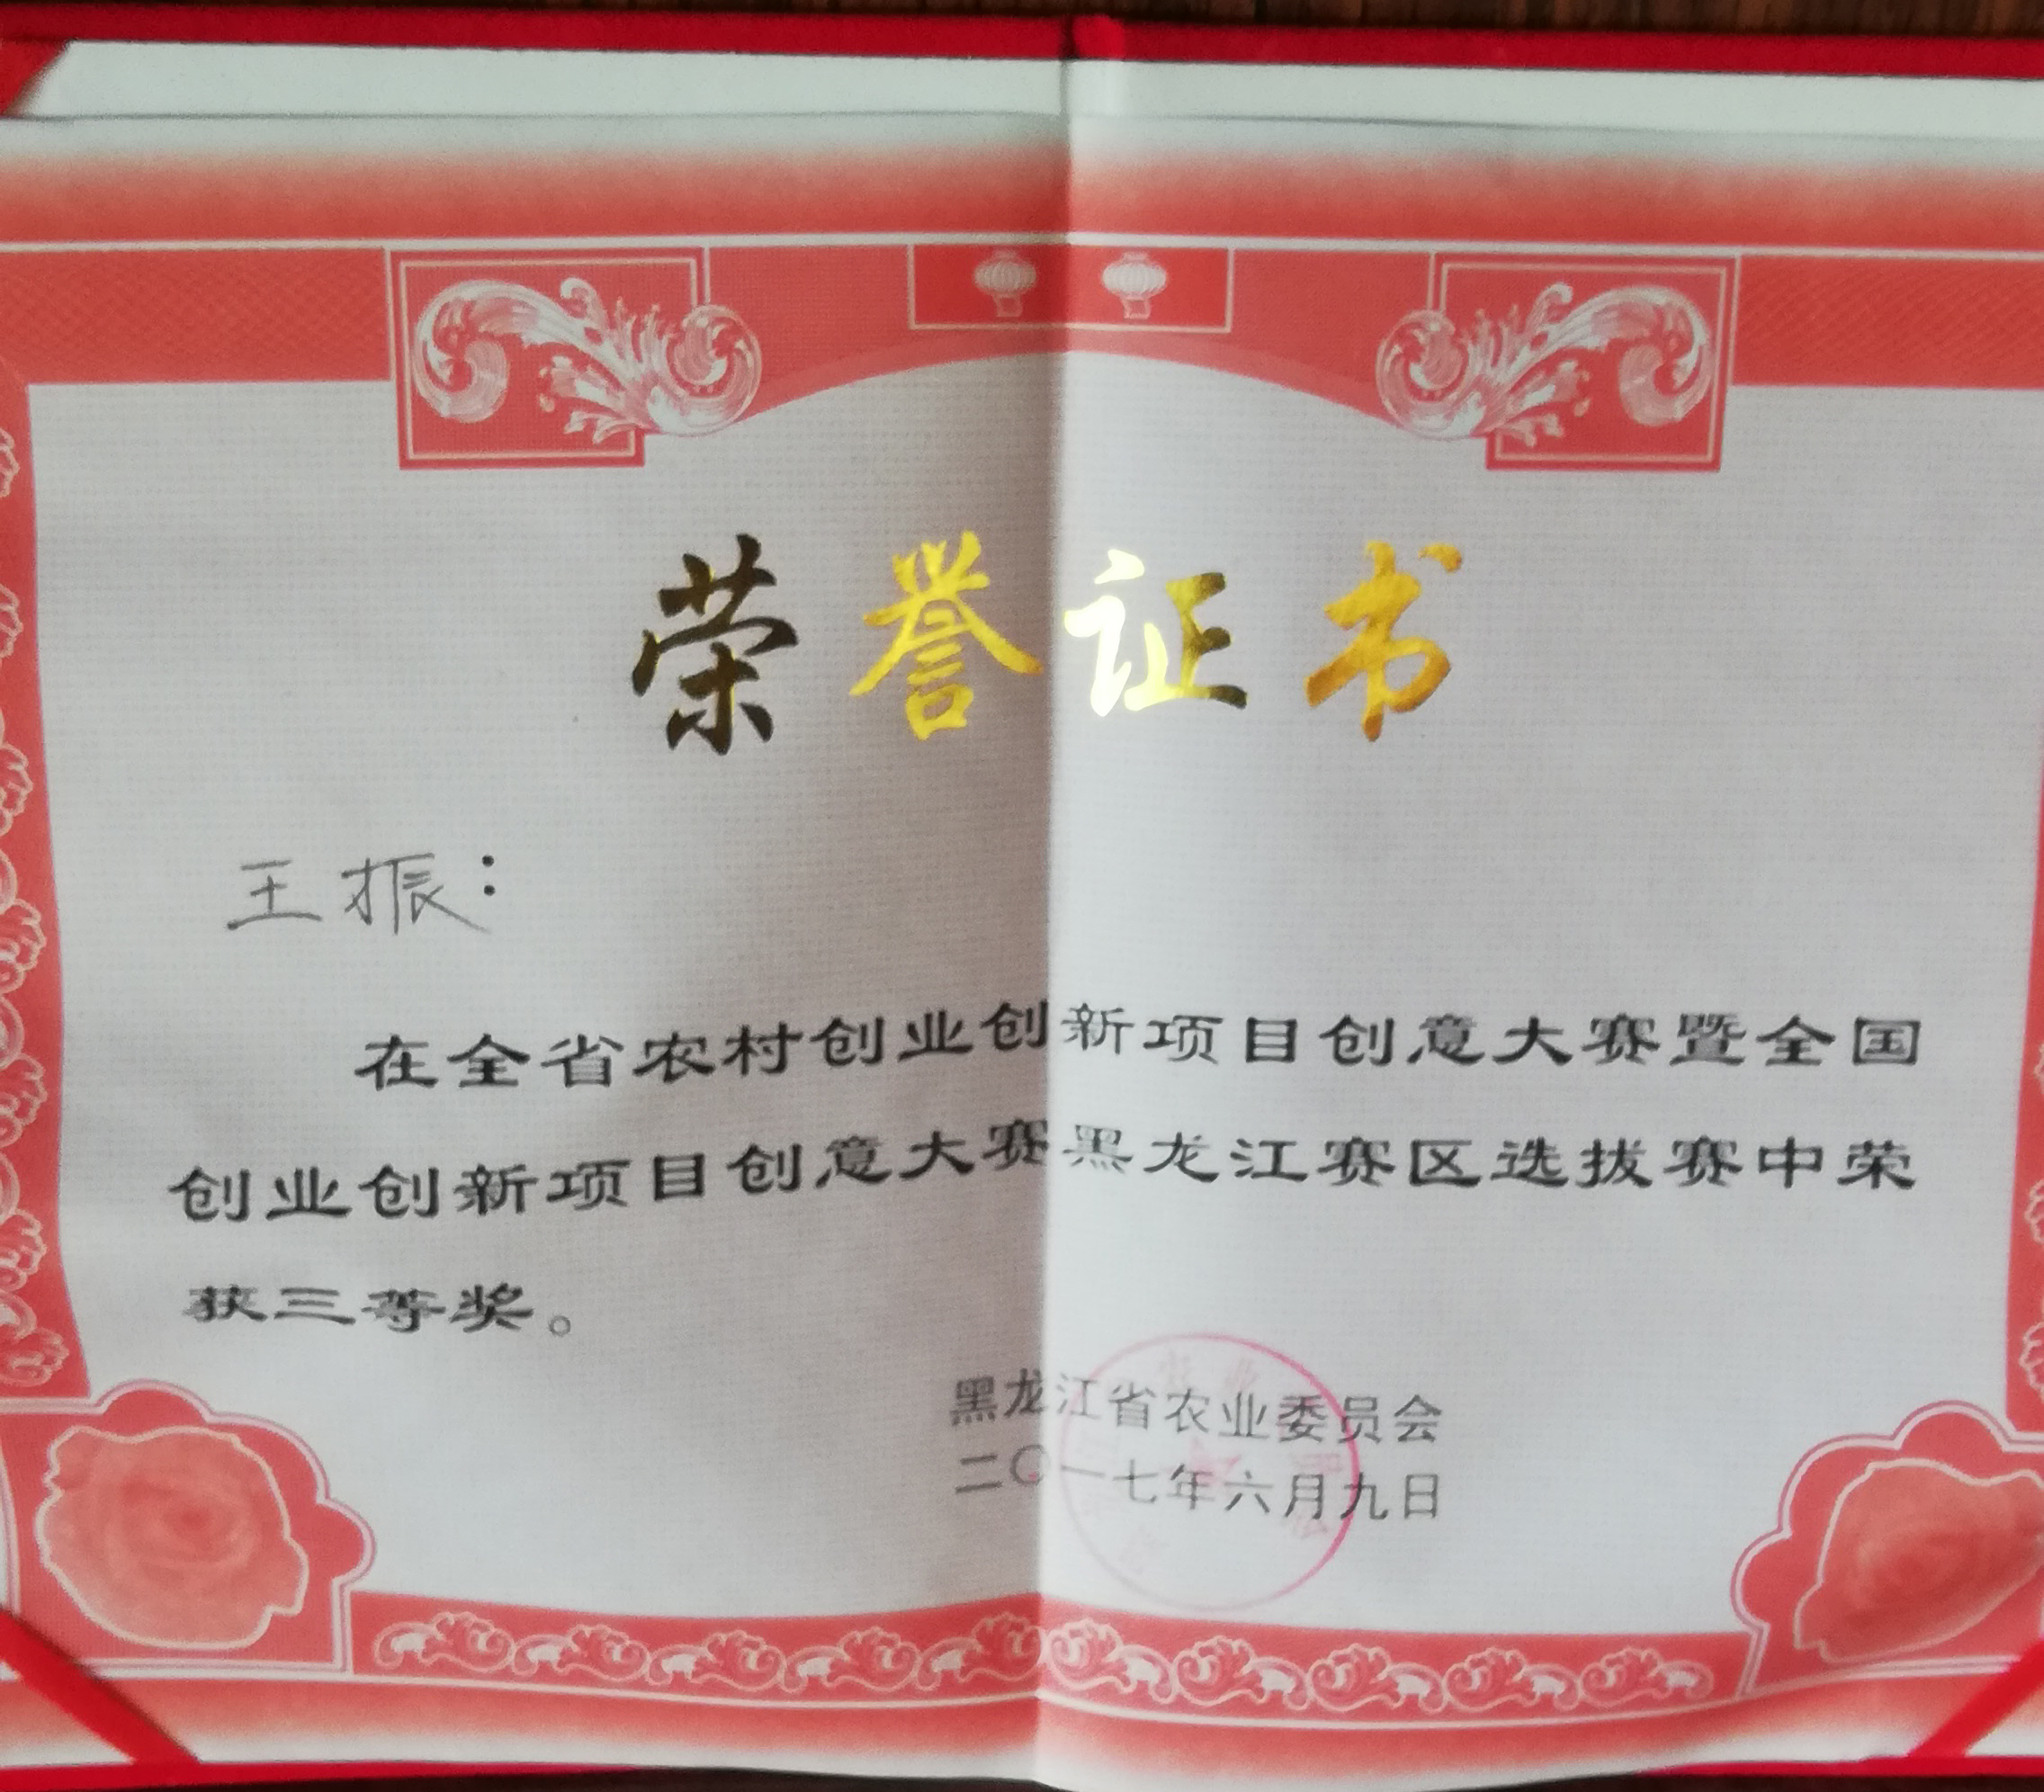 荣誉证书
王振：
在全省农村创业创新项目创意大赛暨全国
创业创新项目创意大赛黑龙江赛区选拔赛中荣
获三等奖。
黑龙江省农业委员会
二〇一七年六月九日